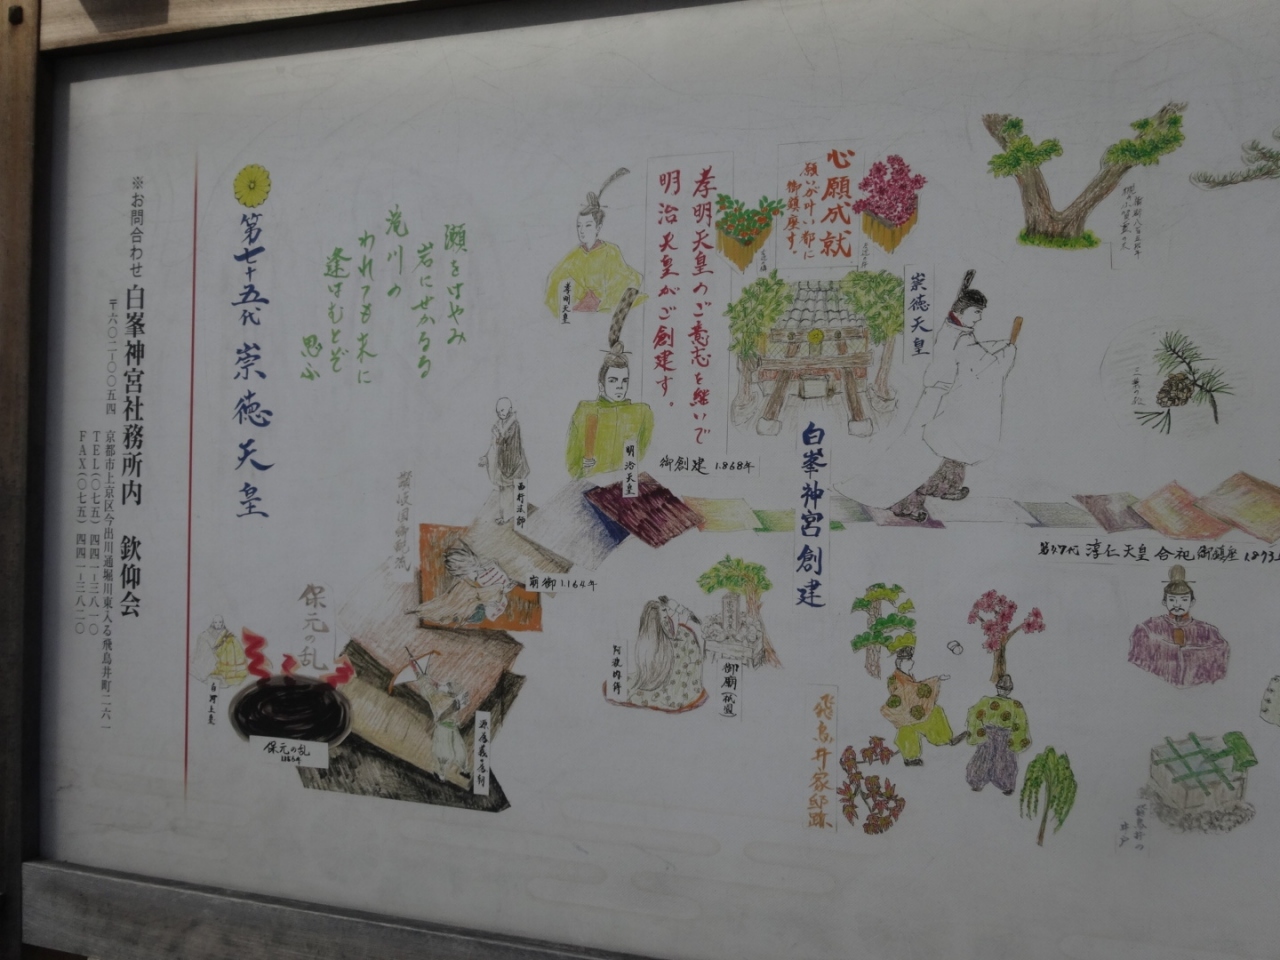 ※お問合わせ 白峯神宮社務所内 欽仰会
〒六〇二-〇〇五四 京都市上京区今出川通堀川東入る飛鳥井町二六一
TEL(〇七五)四四一-三八一〇
FAX(〇七五)四四一-三八二〇
第七十五代 崇徳天皇
瀬をはやみ
岩にせかるる
滝川の
われても末に
逢はむとぞ
思ふ
孝明天皇
明治天皇
西行法師
孝明天皇のご意志を継いで
明治天皇がご創建す。
心願成就
願いが叶い都に
御鎮座す。
崇徳天皇
御創建 1868年
白峯神宮創建
第47代 淳仁天皇 合祀 御鎮座 1873
崩御 1164年
保元の乱
保元の乱
阿波内侍
御廟(祇園)
飛鳥井家邸跡
三葉の松